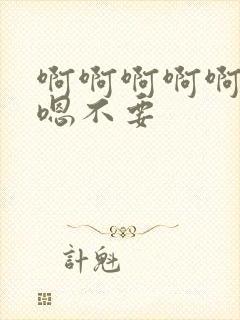 啊啊啊啊啊
嗯不要
計魁